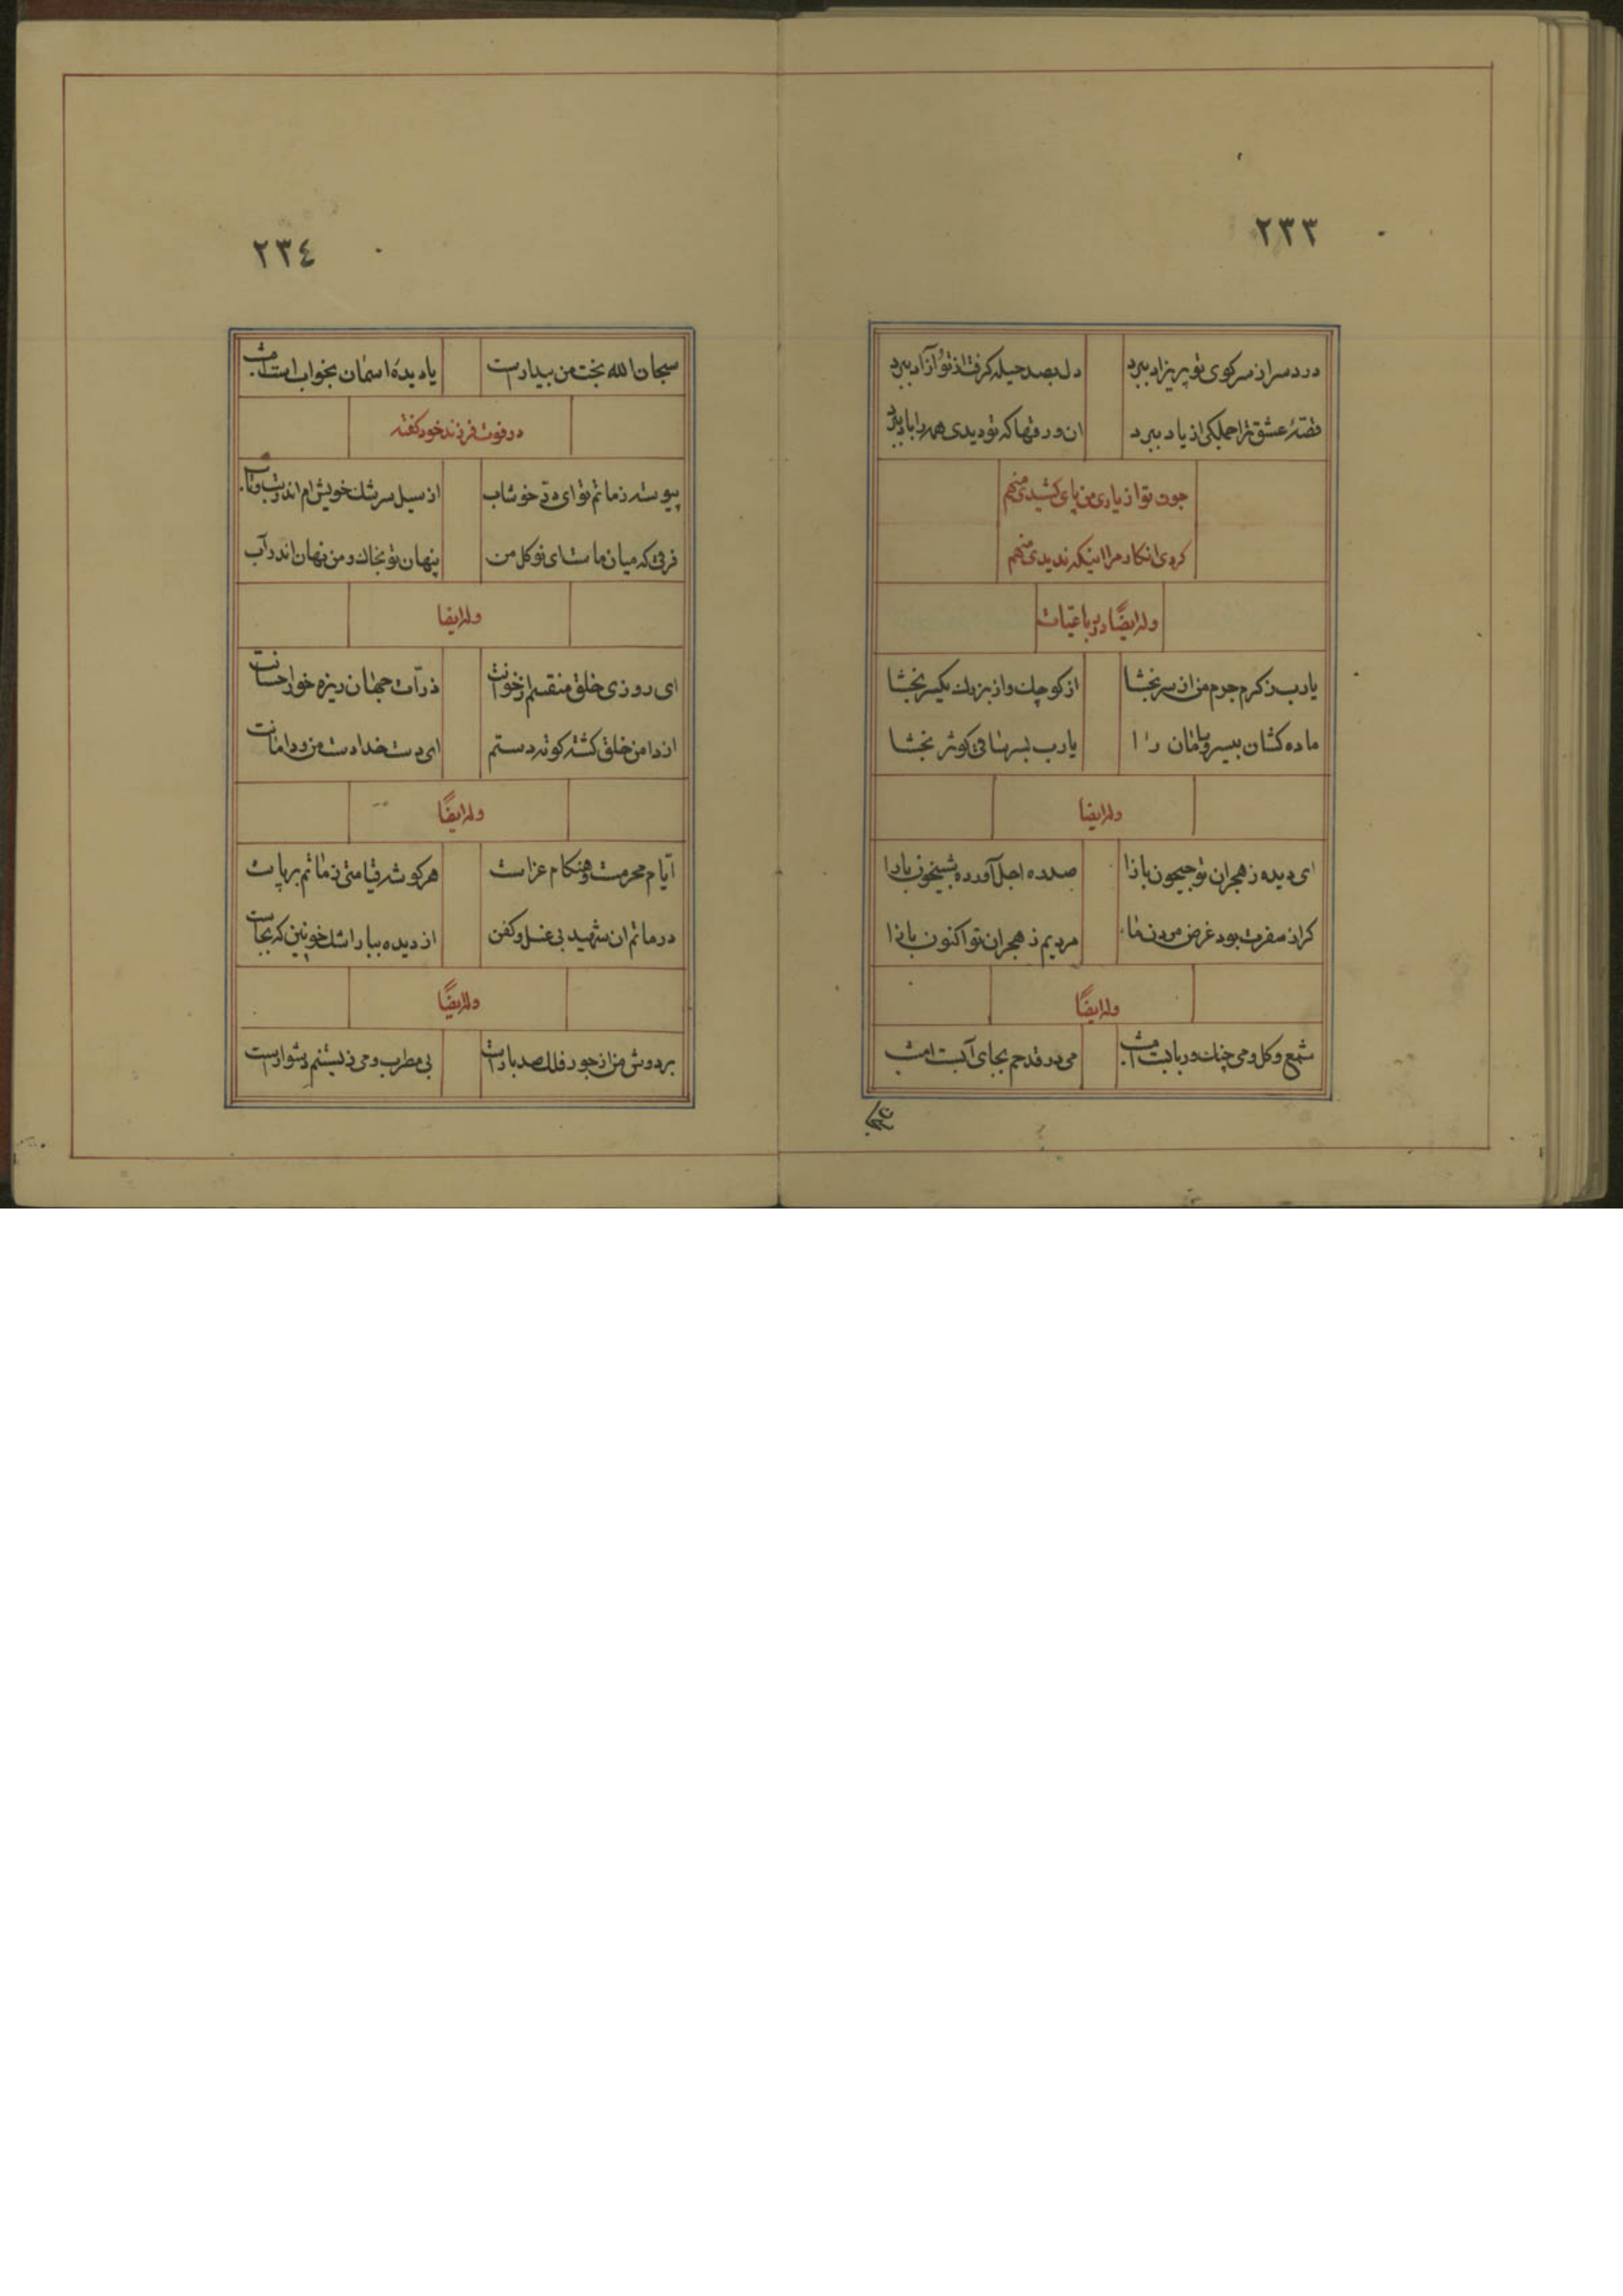 ٢٣٣
درد سر از سر کوی تو پریزاد ببرد
دل بصد حیله گرفت از تو آزاد ببرد
قصهٔ عشق ترا جملگی از یاد ببرد
ان ورقها که تو دیدی همه را باد ببرد
چون تو از یاری من پای کشیدی منهم
کردی انکار مرا اینکه ندیدی منهم
وله ایضًا در رباعیات
یارب ز کرم جرم من از سر بخشا
از کوچک و از بزرک یکسر بخشا
ماده کشان بیسر و سامان را
یارب بساقی کوثر بخشا
وله ایضا
ای دیده ز هجران تو جیحون بازا
صد ره اجل آورده شبیخون بازا
کر از سفرت بود غرض مردن ما
مردیم ز هجران تو اکنون بازا
وله ایضًا
شمع و کل و می چنک و ربابست امشب
می در قدحم بجای آبست امشب
٢٣٤
سبحان الله بخت من بیدارست
یا دیدهٔ اسمان بخواب است امشب
در فوت فرزند خود کفته
پیوسته ز ماتم تو ای در خوشاب
از سیل سرشک خویش ام اندر تب و تاب
فرقی که میان ماست ای نوکل من
پنهان تو بخاک و من نهان اندر آب
وله ایضا
ای روزی خلق منقسم از خوانت
ذرات جهان ریزه خور احسانت
از دامن خلق کشته کوته دستم
ای دست خدا دست من و دامانت
وله ایضًا
ایام محرمست و هنکام عزاست
هر کوشه قیامتی ز ماتم برپاست
در ماتم ان شهید بی غسل و کفن
از دیده ببار اشک خونین که بجاست
وله ایضًا
بر دوش من از جور فلک صد بارست
بی مطرب و می زیستنم دشوارست